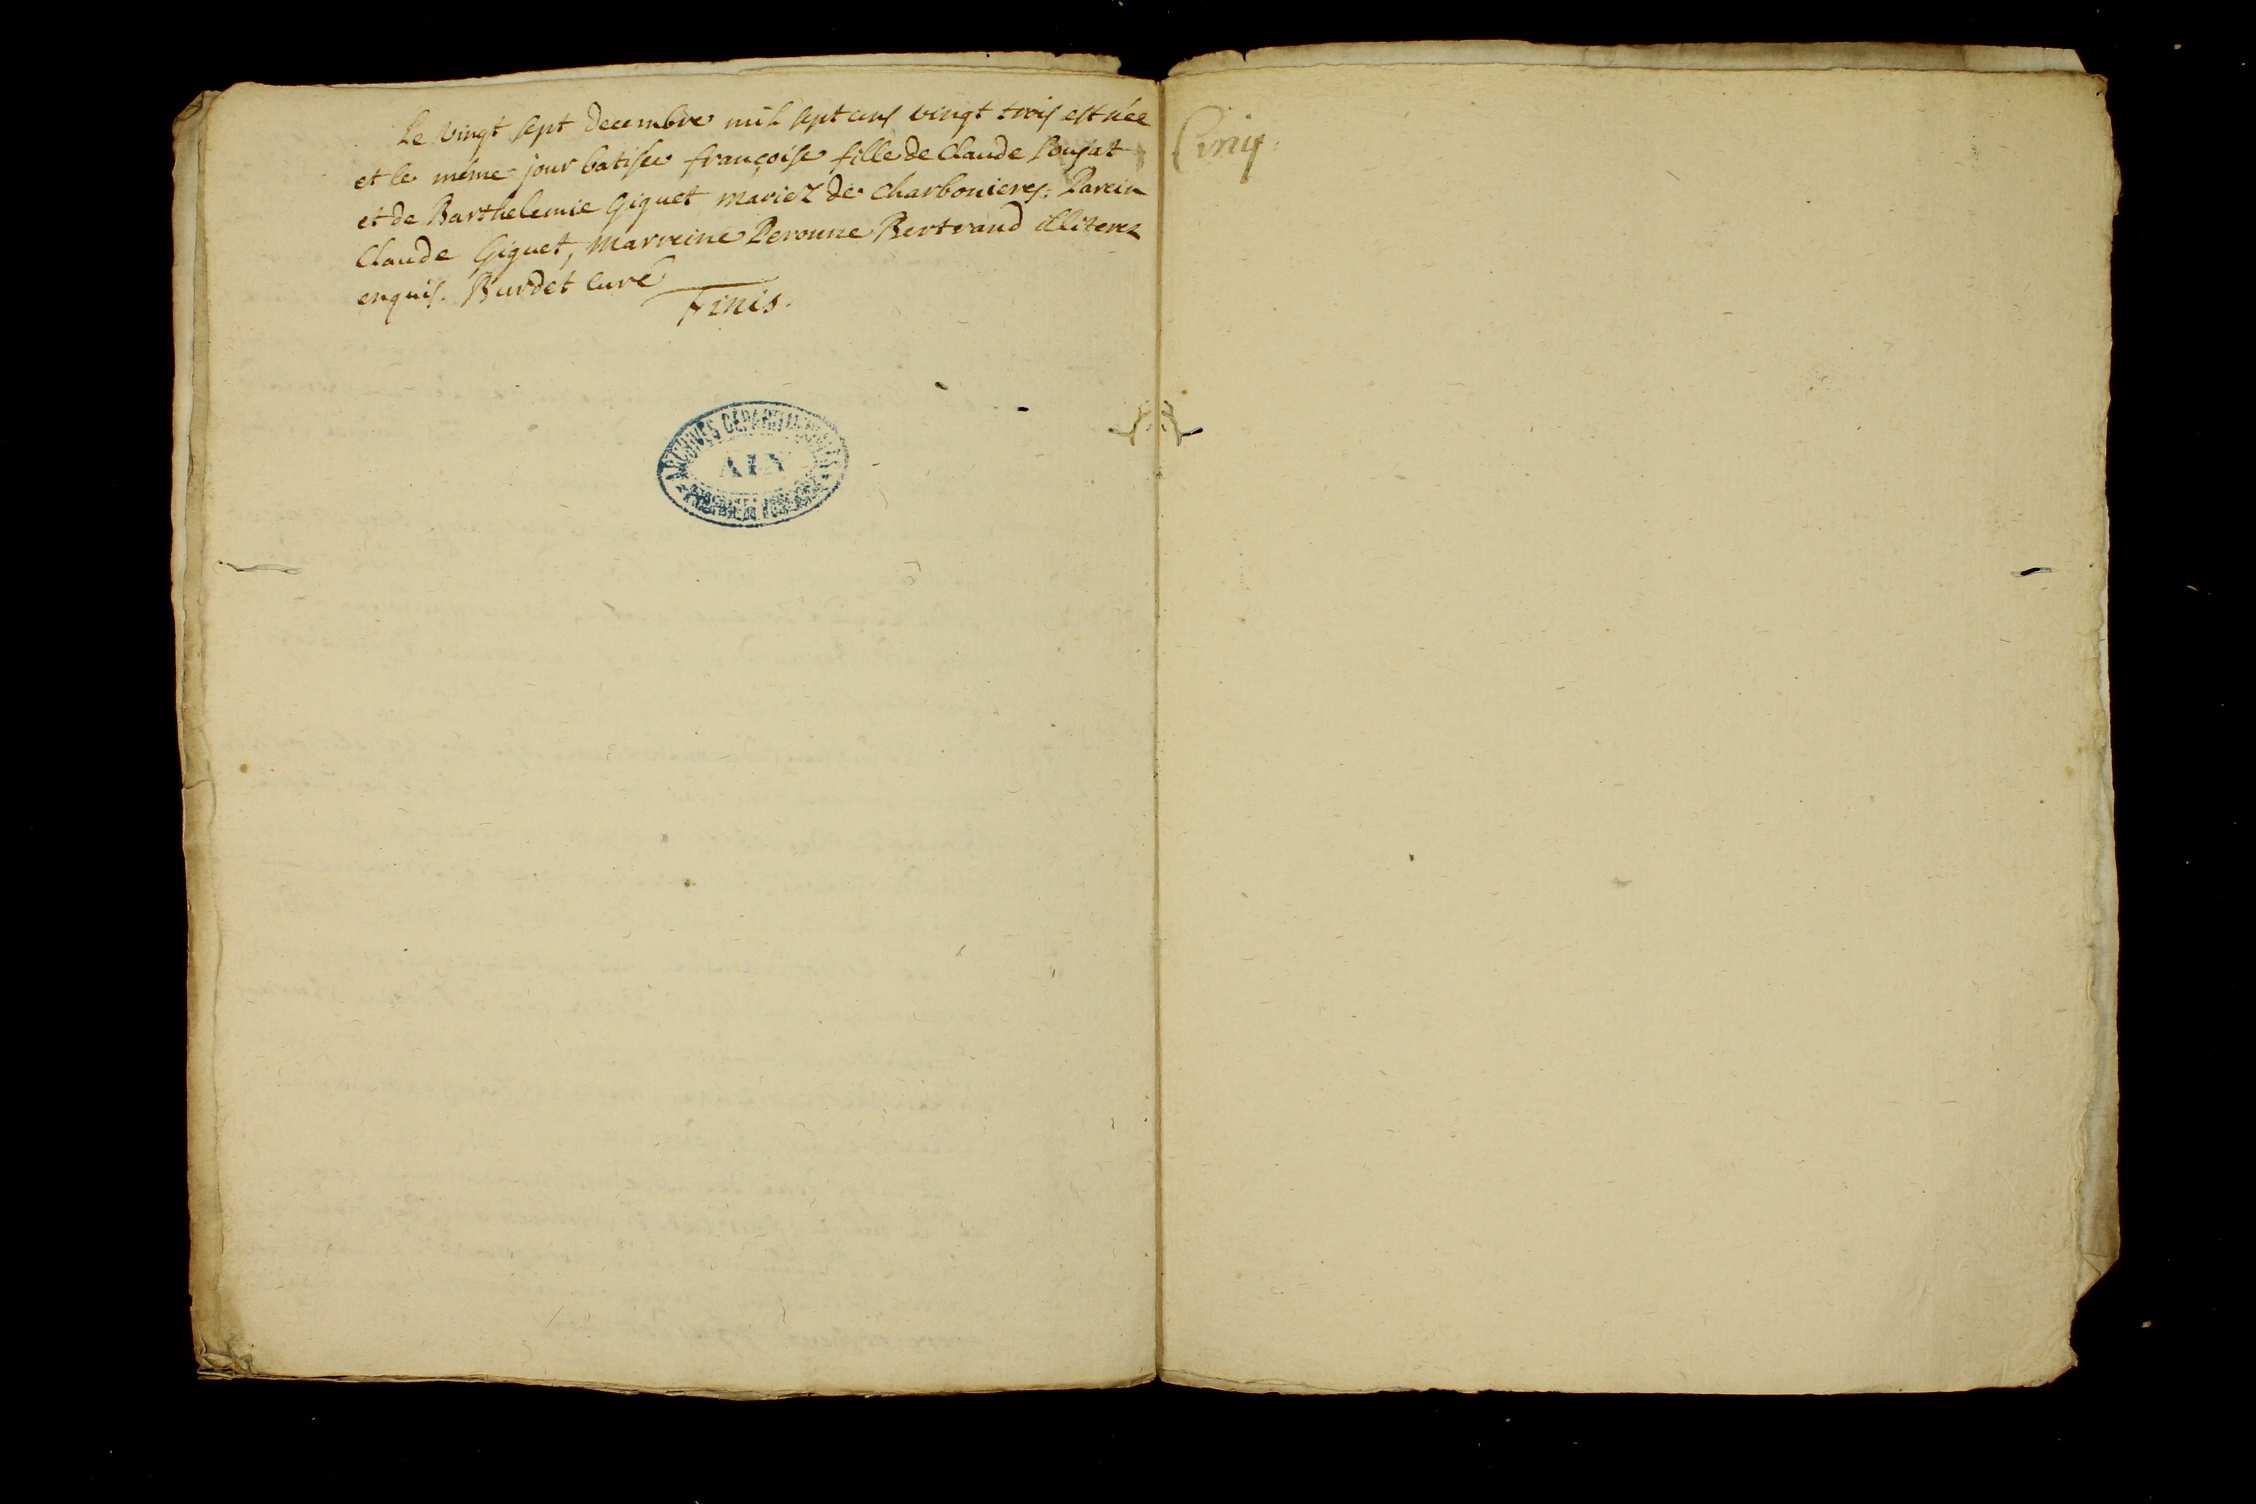 Le vingt sept decembre mil sept cens vingt trois est née
et le même jour batisée françoise fille de Claude Pousat
et de Barthelemie Giguet mariez de Charbonieres. Parein
Claude Giguet, Marreine Peronne Bertrand illiterez
enquis. Burdet Curé
Finis.
ARCHIVES DEPARTEMENTALES
AIN
Cinq